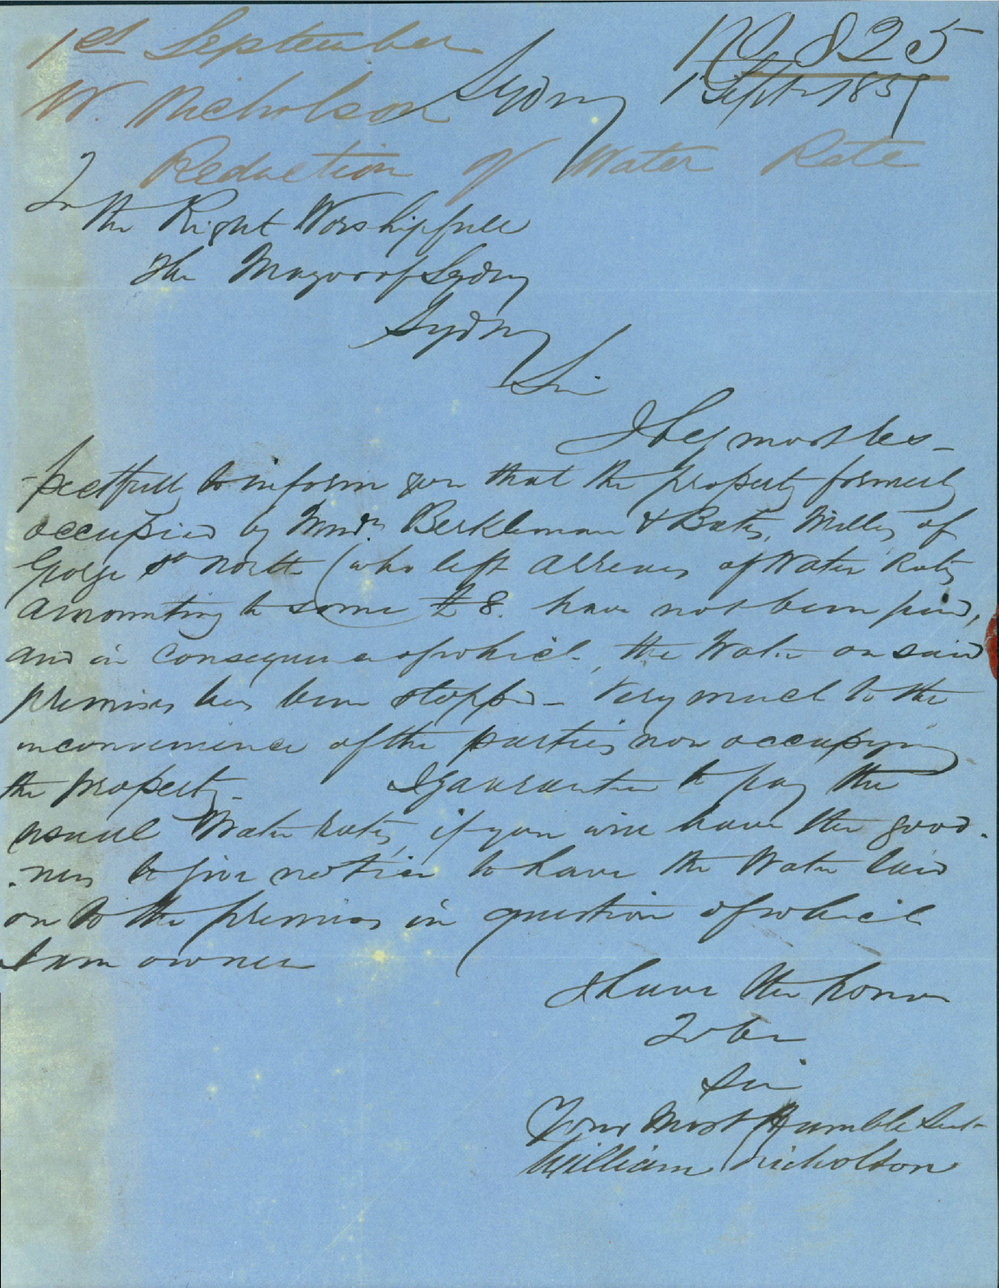 1st September No 825
W. Nicholson Sydney 1 Septr 1857
Reduction of Water Rate
To the Right Worshipfull
The Mayor of Sydney
Sydney
Sir
I beg most res-
-pectfully to inform you that the property formerly
occupied by Berkleman & Bates, of
George St North (who left arrears of Water Rates
amounting to some £8. have not been paid,
and in consequence of which, the Water on said
premises has been stopped - Very much to the
inconvenience of the parties now occupying
the property - I guarantee to pay the
usual Water rates, if you will have the good-
-ness to give notice to have the Water laid
on to the premises in question of which
I am owner
I have the honor
To be
Sir
Your Most Humble Servt
William Nicholson